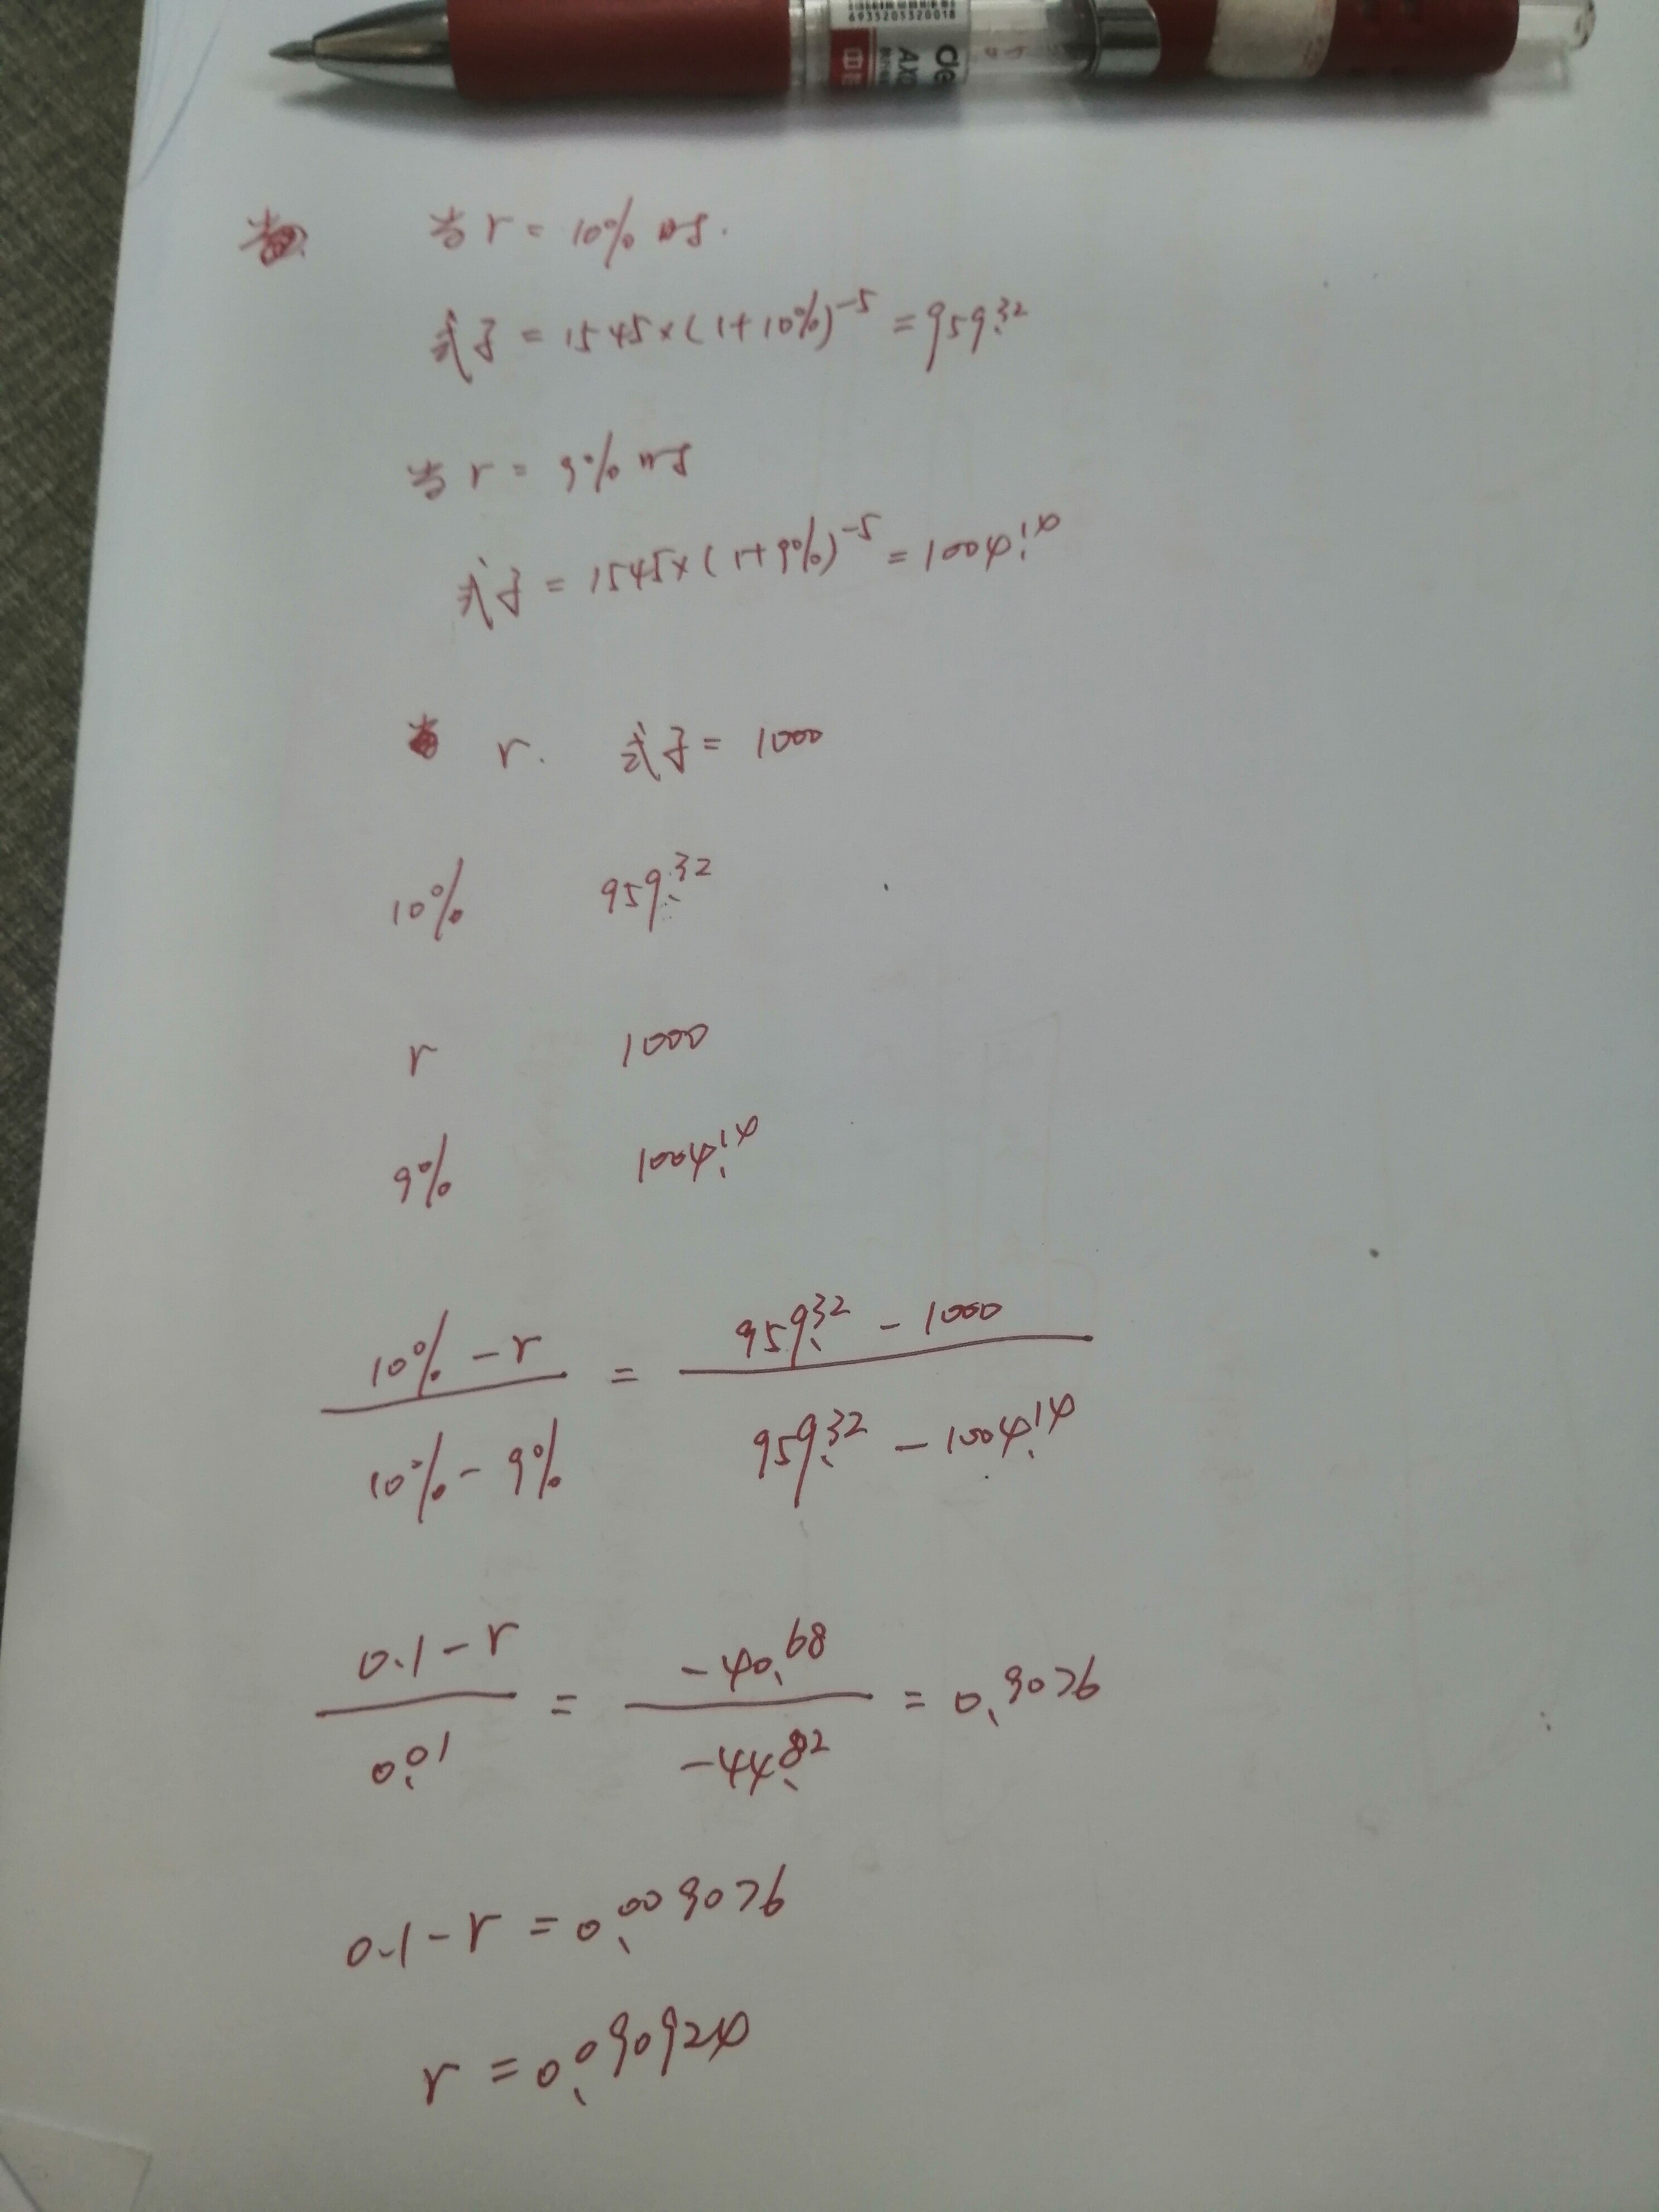 6935205320018
de
当r=10%时.
式子=1545×(1+10%)^-5=959.32
当r=9%时
式子=1545×(1+9%)^-5=1004.14
r. 式子=1000
10% 959.32
r 1000
9% 1004.14
(10%-r)/(10%-9%) = (959.32-1000)/(959.32-1004.14)
(0.1-r)/0.01 = -40.68/-44.82 = 0.9076
0.1-r=0.009076
r=0.090924